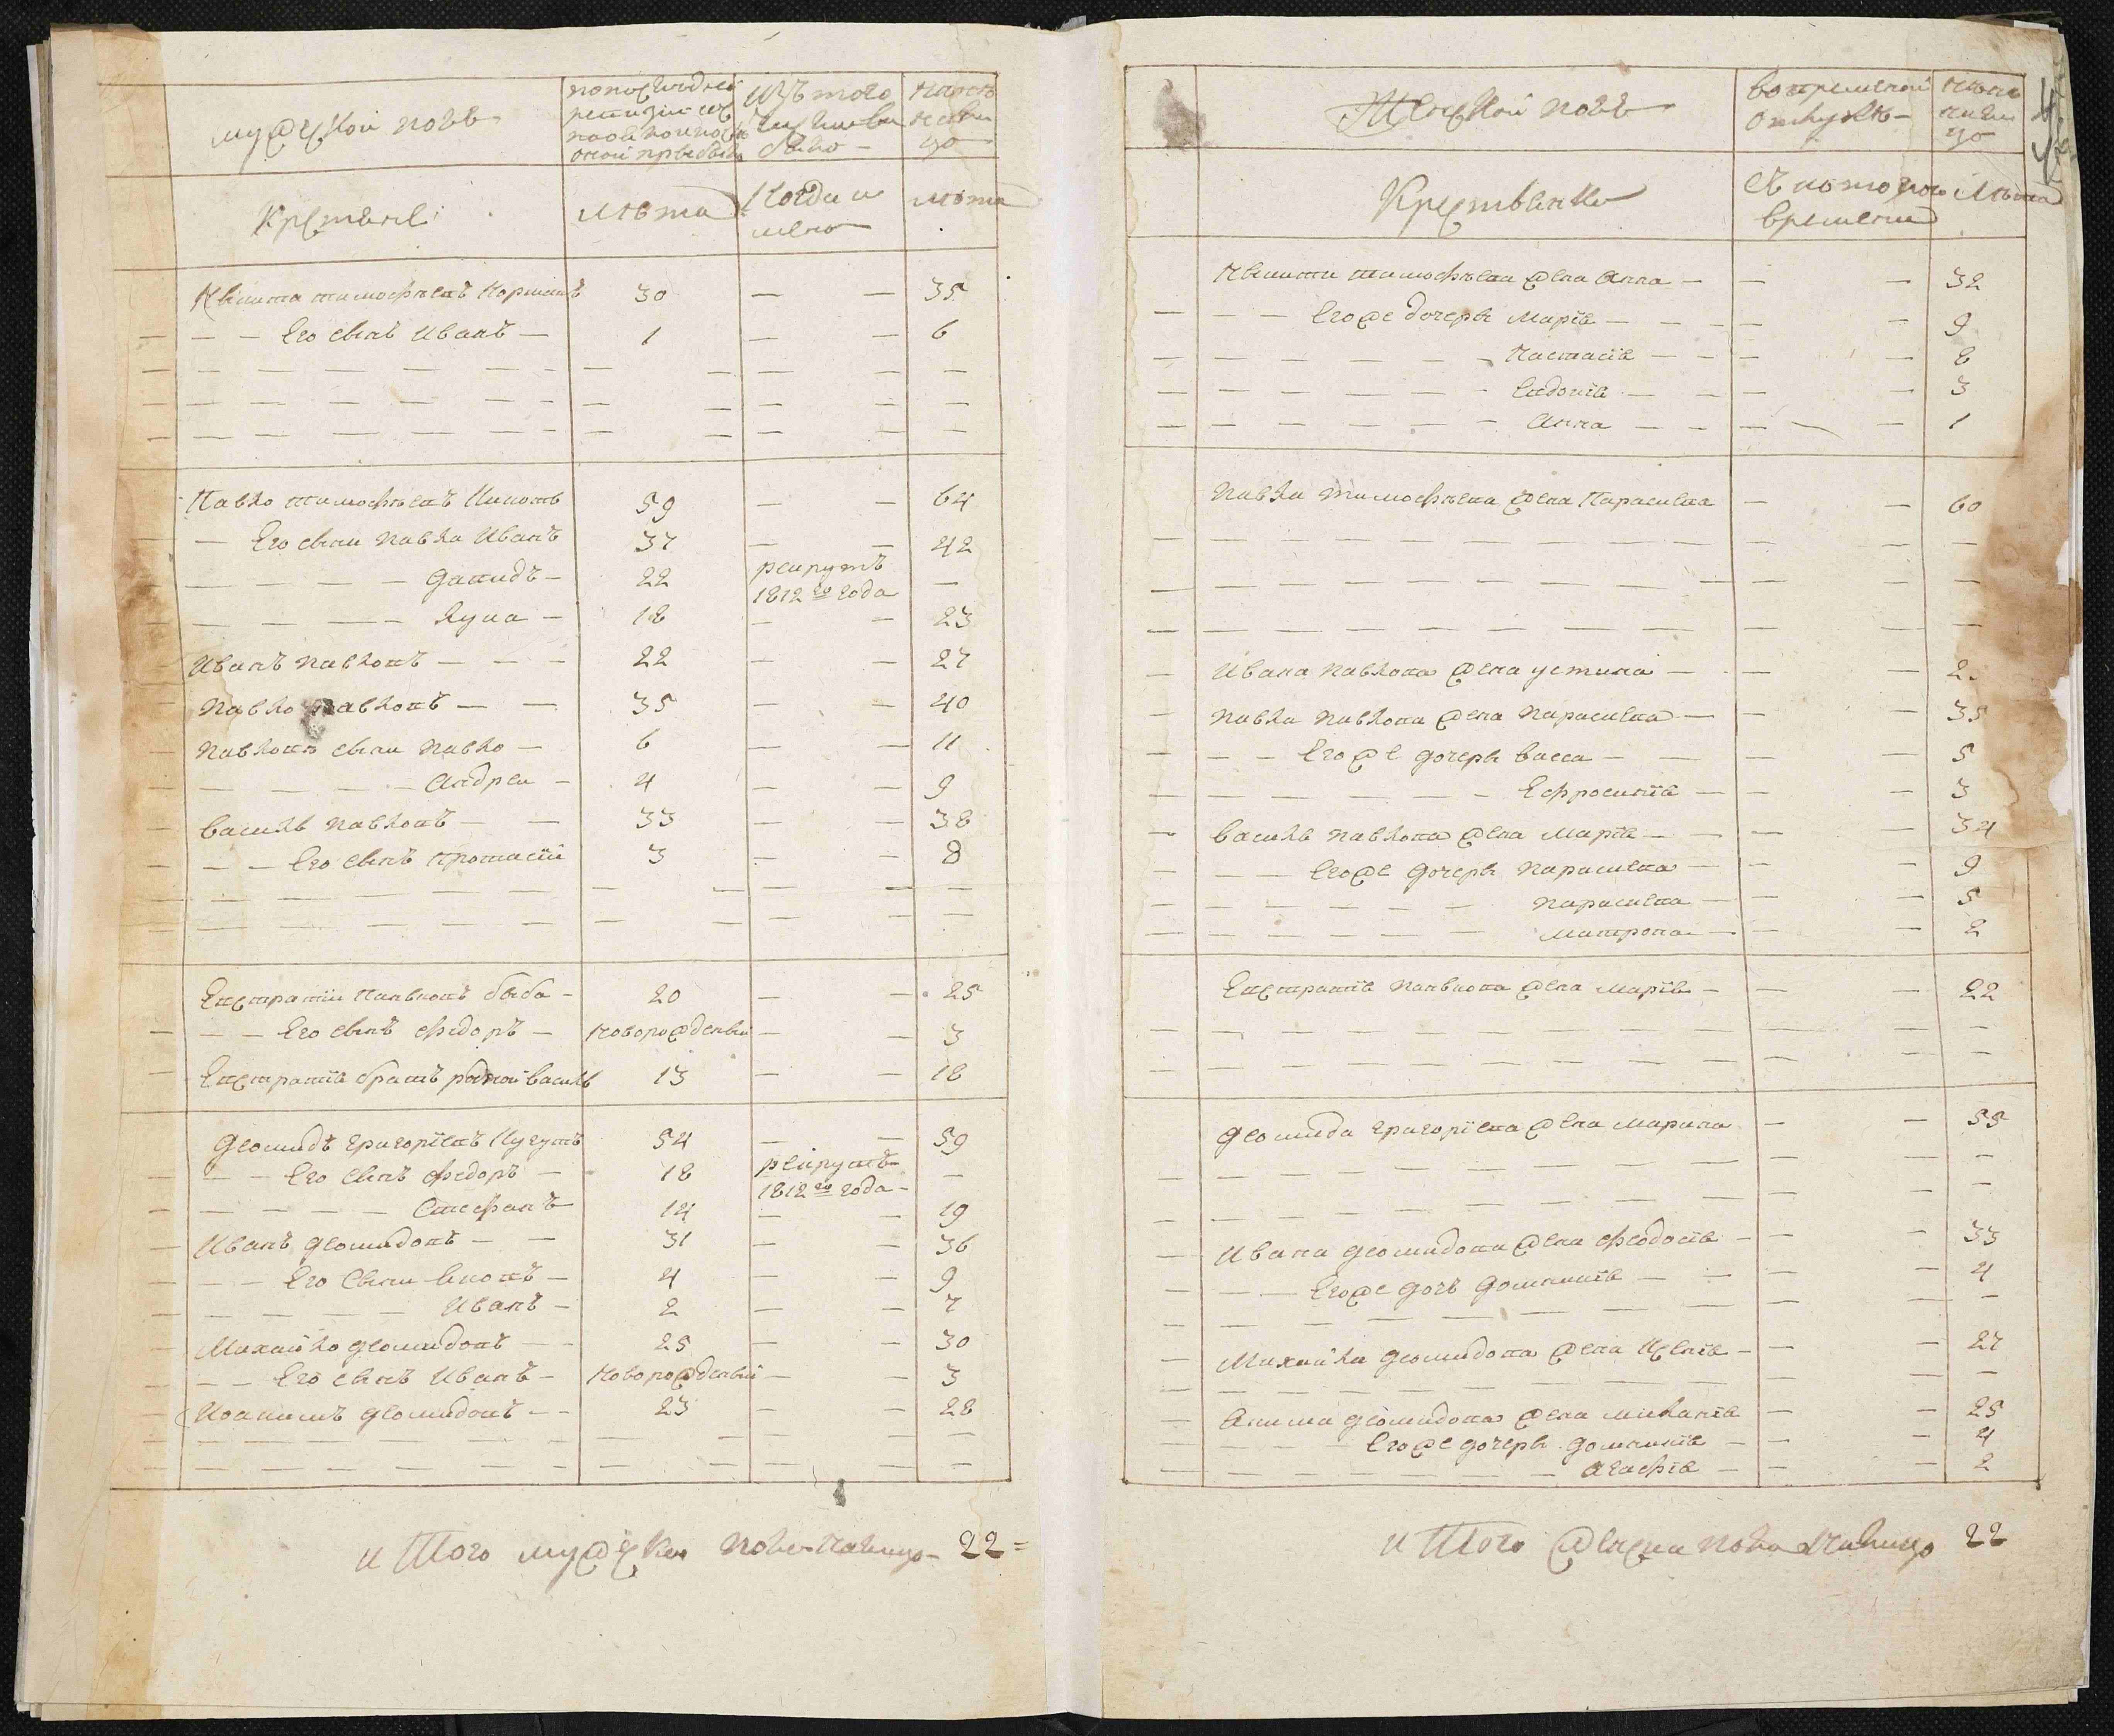 мужеской полъ
по последней
ревизiи состояло и после
оной прибыло
Изъ того
числа вы
было
Ныне
нали
цо
Крестьяне
Лѣта
Когда и
имено
Лѣта
Никита Тимофѣевъ 30 — — 35
Его сынъ Иванъ 1 — — 6
Павло Тимофѣевъ 59 — — 64
Его сыни Павла Иванъ 37 — — 42
Давидъ 22 рекрутъ 1812го года —
Лука 18 — — 23
Иванъ Павловъ 22 — — 27
Павло Павловъ 35 — — 40
Павловы сыни Павло 6 — — 11
Андреи 4 — — 9
Василь Павловъ 33 — — 38
Его сынъ Протасiй 3 — — 8
Евстратiи Павловъ быба 20 — — 25
Его сынъ Федоръ новорожденый — — 3
Евстратiя братъ родной Василь 13 — — 18
Деомидъ Григорiевъ 54 — — 59
Его сынъ Федоръ 18 рекрутъ 1812го года —
Стефанъ 14 — — 19
Иванъ Деомидовъ 31 — — 36
Его сыни 4 — — 9
Иванъ 2 — — 7
Михайло Деомидовъ 25 — — 30
Его сынъ Иванъ новорожденый — — 3
Иоакимъ Деомидовъ 23 — — 28
и Того мужеска пола налицо 22
Женской полъ
во временной
отлучке
Ныне
нали
цо
Крестьянки
Съ котораго
времени
Лѣта
Никиты Тимофѣева жена Анна — — 32
Егоже дочеры Марiя — — 9
Настасiя — — 8
Евдокiя — — 3
Анна — — 1
Павла Тимофѣева жена Параскева — — 60
Ивана Павлова жена Устина — — 2
Павла Павлова жена Параскева — — 35
Егоже дочеры Васса — — 5
Ефросинiя — — 3
Василя Павлова жена Марiя — — 34
Егоже дочеры Параскева — — 9
Параскева — — 5
Матрона — — 2
Евстратiя Павлова жена Марiя — — 22
Деомида Григорiева жена Марина — — 55
Ивана Деомидова жена Феодосiя — — 33
Егоже дочь Домникiя — — 4
Михайла Деомидова жена Ксенiя — — 27
Акима Деомидова жена Миланiя — — 25
Егоже дочеры Домникiя — — 4
Агафiя — — 2
и Того женска пола налицо 22